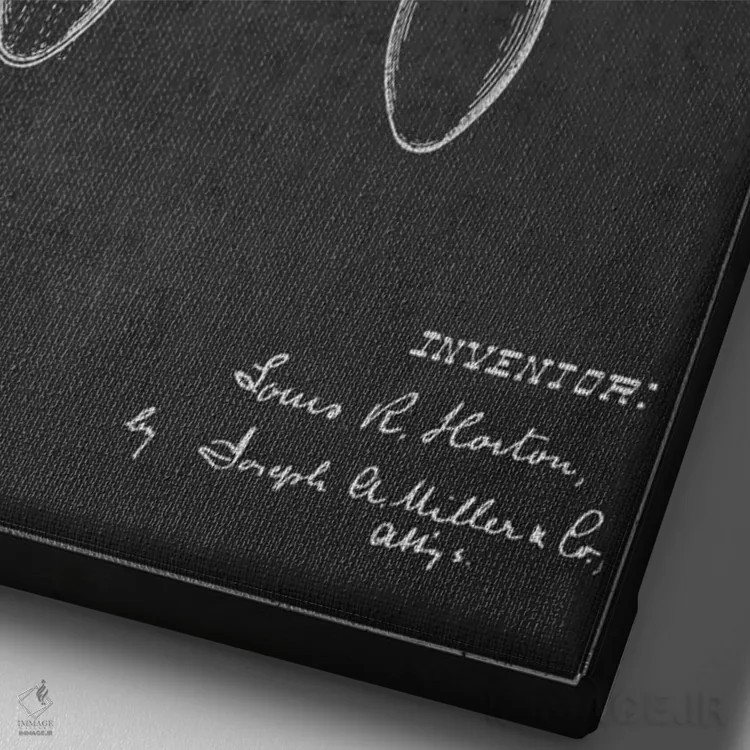 INVENTOR:
Louis R. Horton,
by Joseph A. Miller & Co.,
Att'ys.
IMMAGE
IMMAGE.IR
IMAGE.IR